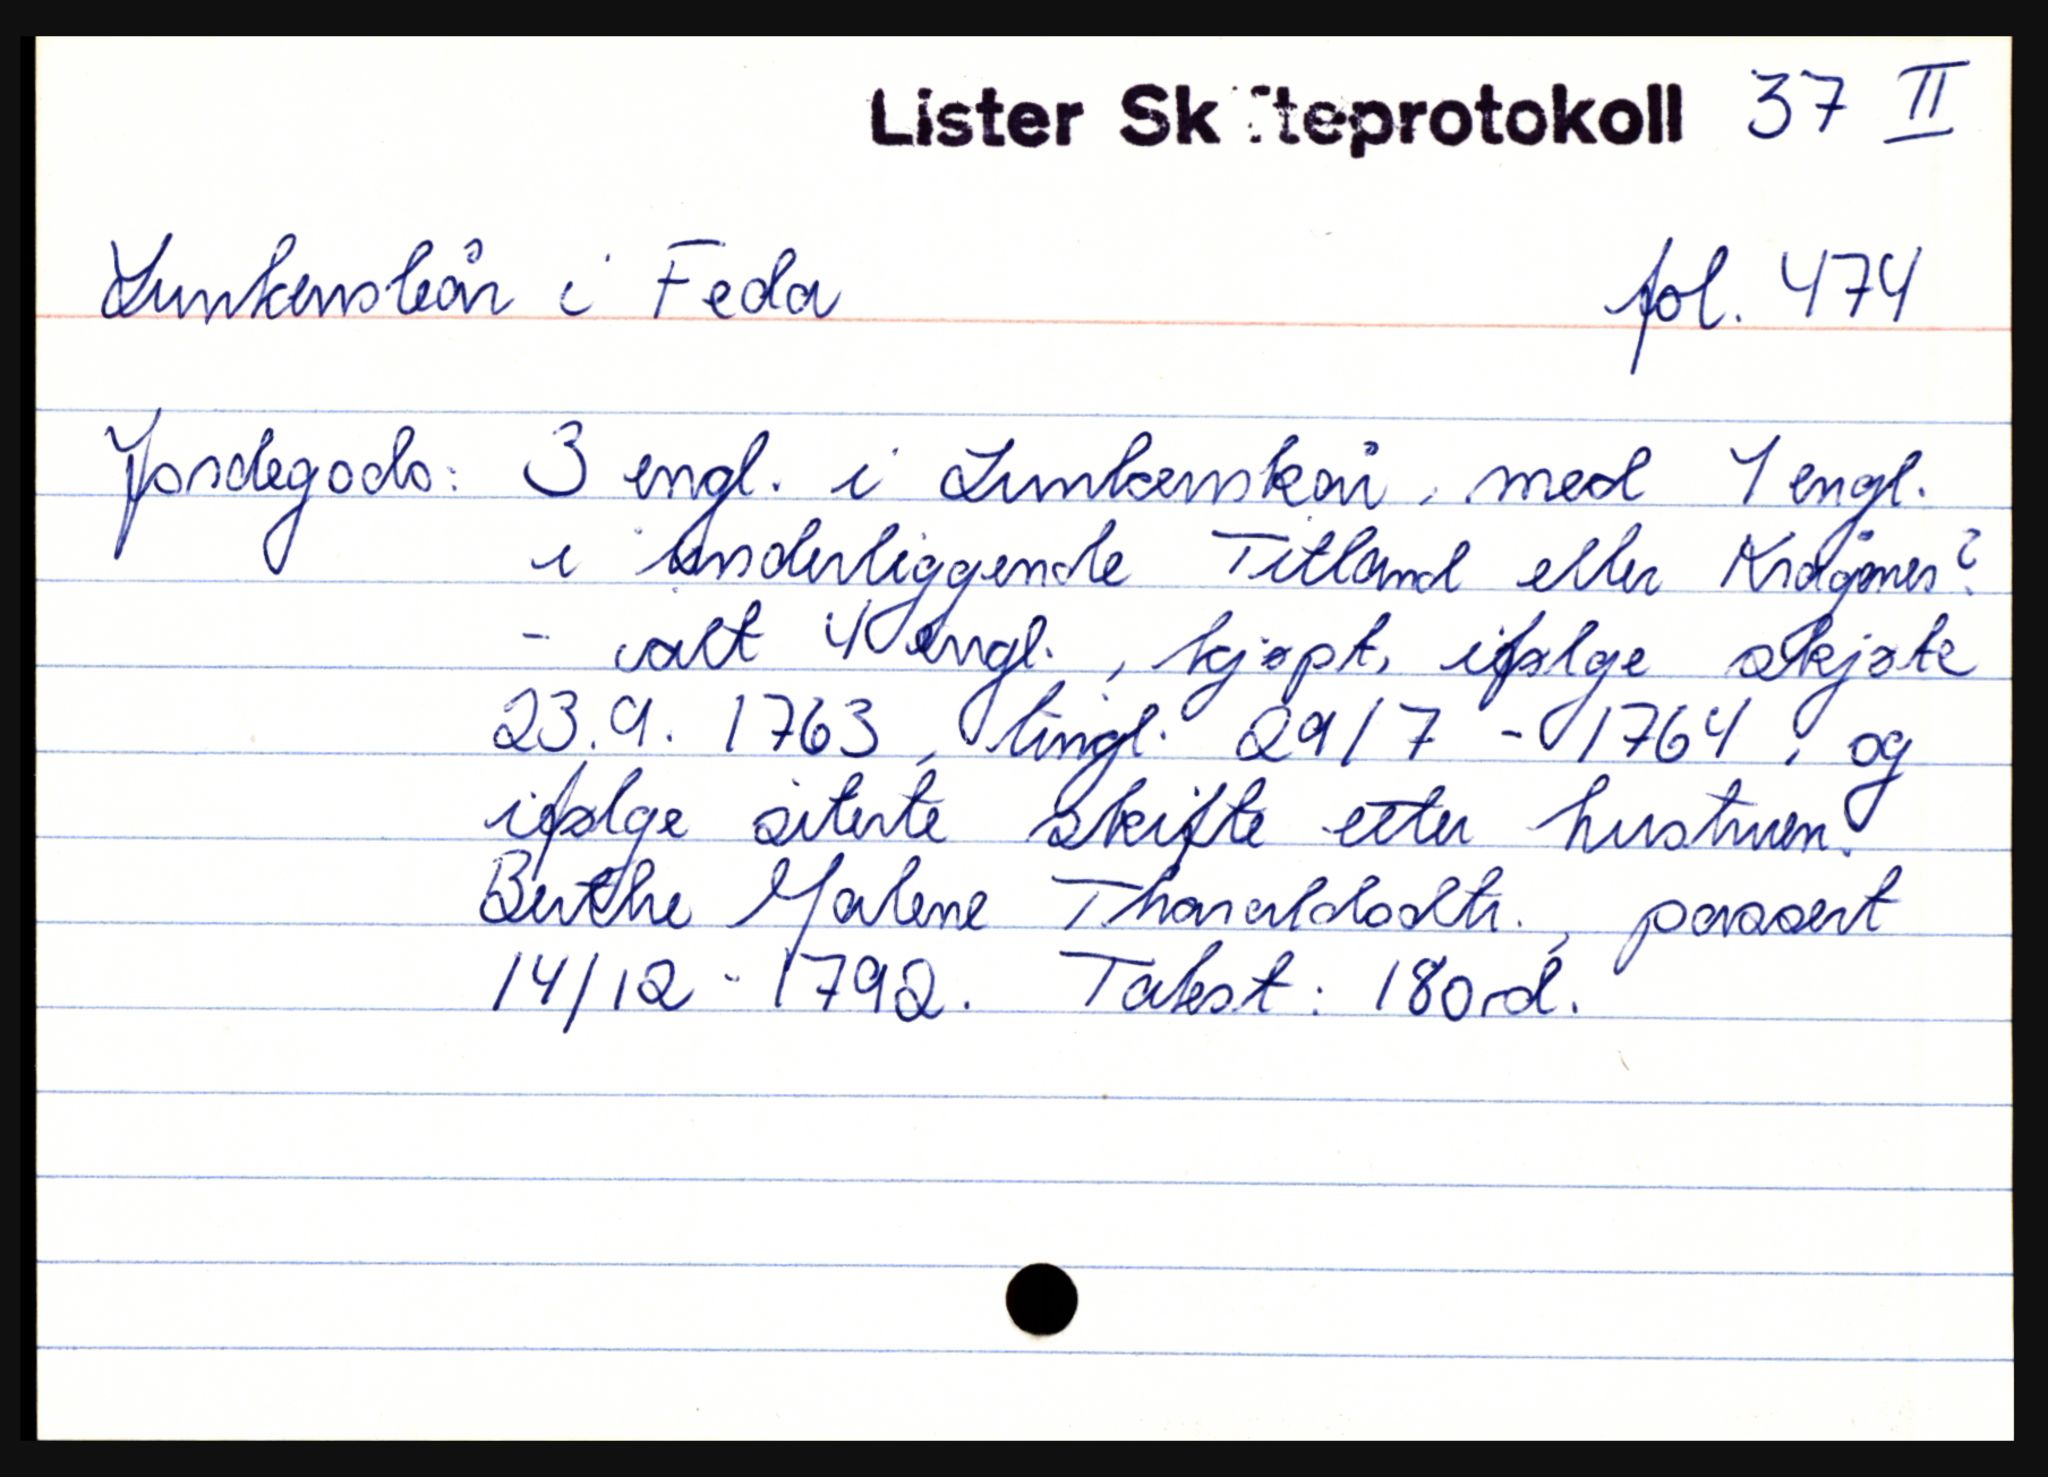 Lister Skifteprotokoll 37 II
Lunkenskår i Feda fol. 474
Jordegods: 3 engl. i Lunkenskår, med 1 engl.
i underliggende Titland eller
- ialt 4 engl., kjøpt, ifølge skjøte
23.9. 1763, tingl. 29/7 - 1764, og
ifølge siterte skifte etter hustruen
Berthe Malene Tharaldsdtr., passert
14/12 - 1792. Takst: 180 rd.